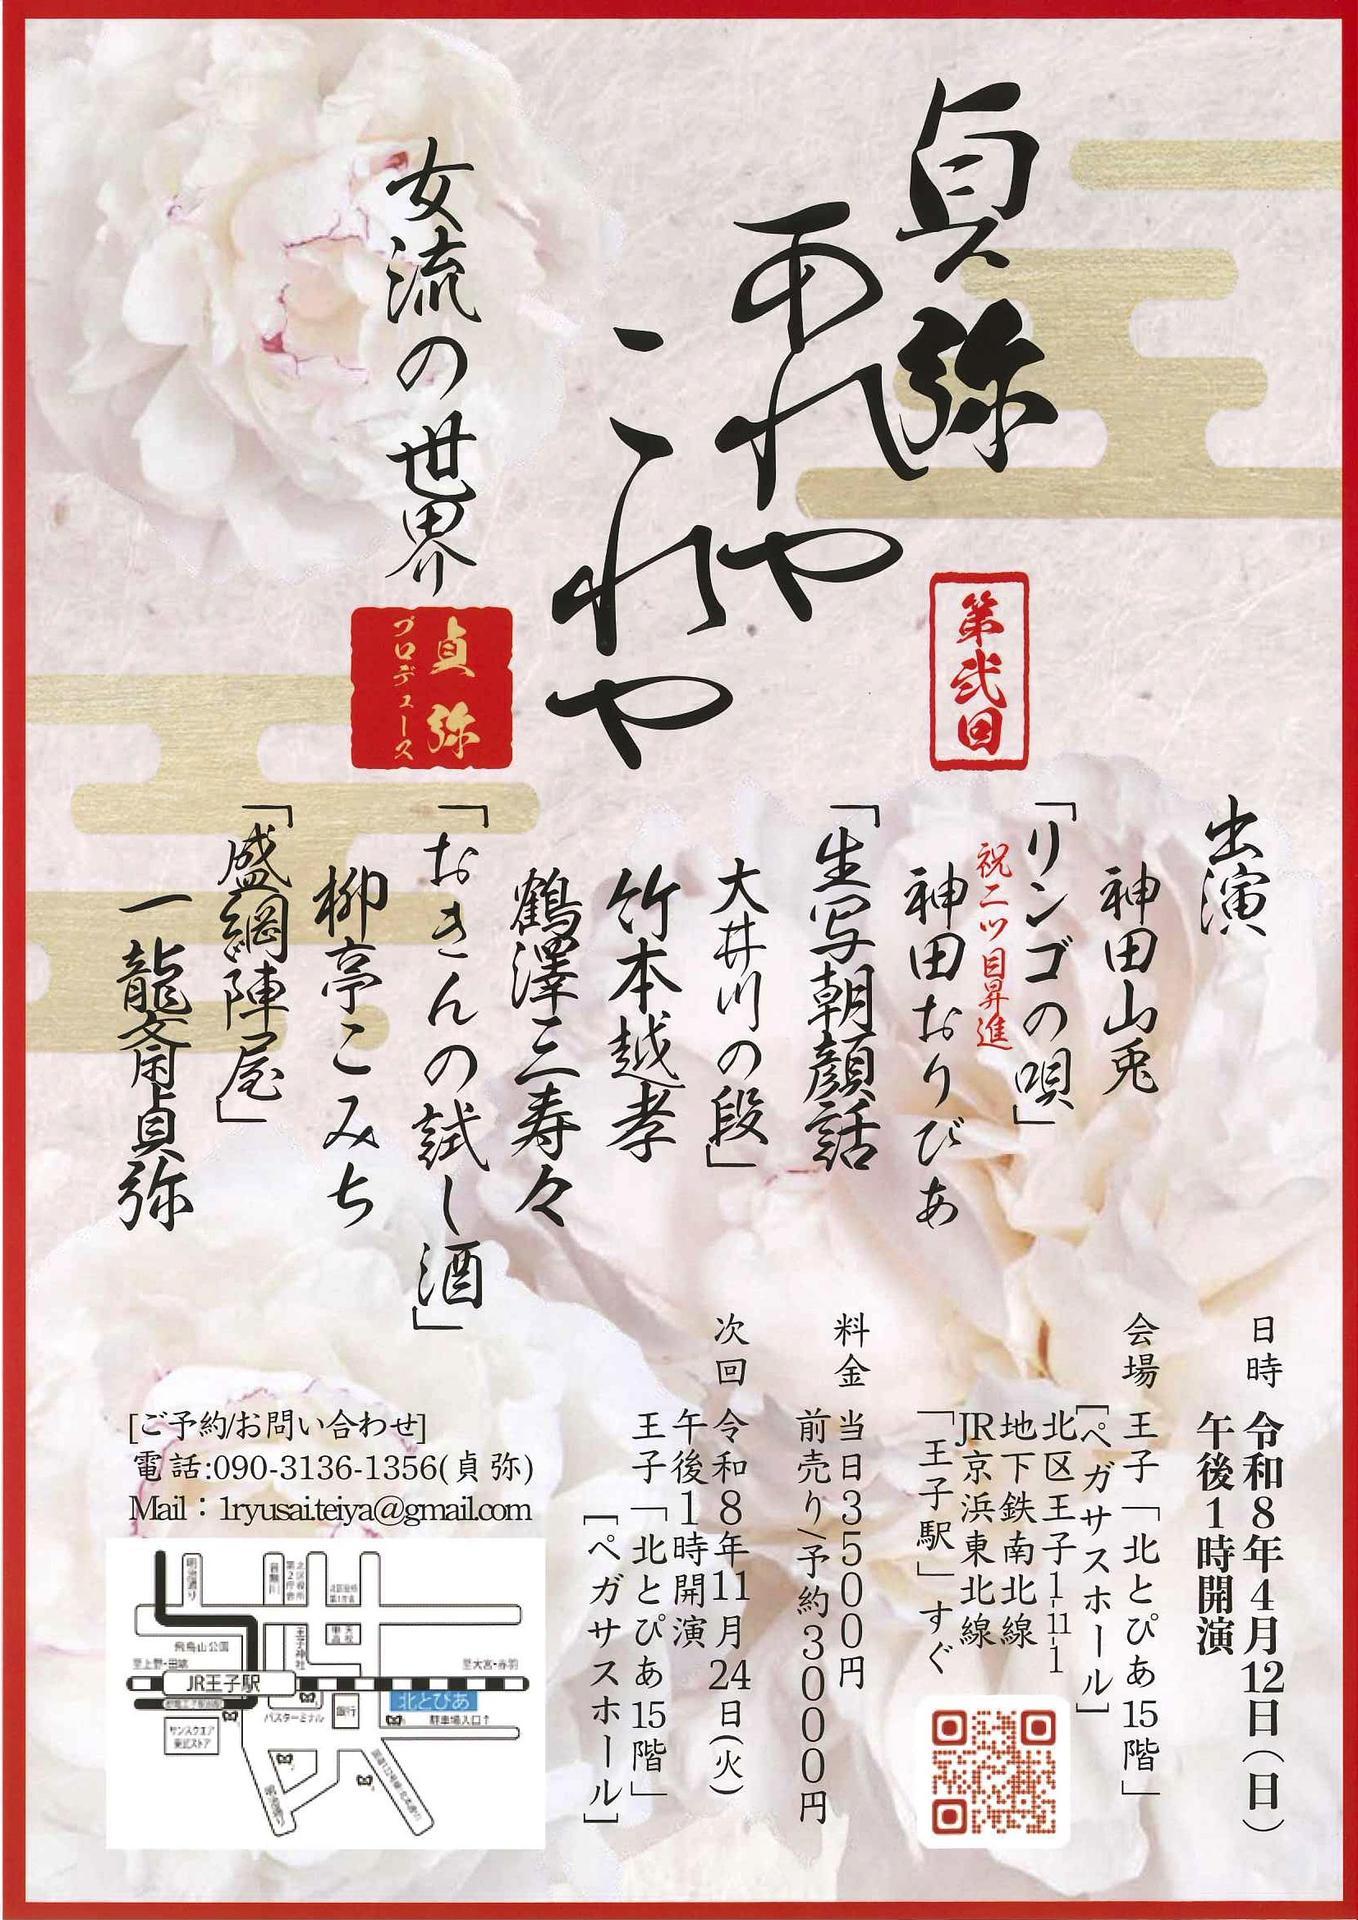 貞弥
あれや
これや
第弐回
女流の世界
貞弥
プロデュース
出演
神田山兎
「リンゴの唄」
祝二ツ目昇進
神田おりびあ
「生写朝顔話
大井川の段」
竹本越孝
鶴澤三寿々
「おきんの試し酒」
柳亭こみち
「盛綱陣屋」
一龍斎貞弥
日時
令和8年4月12日(日)
午後1時開演
会場
王子「北とぴあ15階」
[ペガサスホール]
北区王子1-11-1
地下鉄南北線
JR京浜東北線
「王子駅」すぐ
料金
当日3500円
前売り/予約3000円
次回
令和8年11月24日(火)
午後1時開演
王子「北とぴあ15階」
[ペガサスホール]
[ご予約/お問い合わせ]
電話:090-3136-1356(貞弥)
Mail：1ryusai.teiya@gmail.com
明治通り
音無川
北区役所
第2庁舎
北区役所
第1庁舎
飛鳥山公園
王子神社
至上野・田端
至大宮・赤羽
JR王子駅
北とぴあ
バスターミナル
銀行
駐車場入口↑
サンスクエア
東武ストア